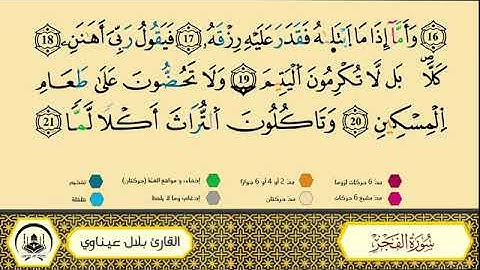 16 وَأَمَّآ إِذَا مَا ٱبْتَلَىٰهُ فَقَدَرَ عَلَيْهِ رِزْقَهُۥ 17 فَيَقُولُ رَبِّيَ أَهَٰنَنِۦ 18
كَلَّا بَل لَّا تُكْرِمُونَ ٱلْيَتِيمَ 19 وَلَا تَحُضُّونَ عَلَىٰ طَعَامِ
ٱلْمِسْكِينِ 20 وَتَاكُلُونَ ٱلتُّرَاثَ أَكْلًا لَّمًّا 21
مدّ 6 حركات لزوما
مدّ 2 أو 4 أو 6 جوازا
إخفاء، و مواقع الغنّة (حركتان)
تفخيم
مدّ مشبع 6 حركات
مدّ حركتان
إدغام، وما لا يلفظ
قلقلة
سُورَةُ الفَجْرِ
القارئ بلال عيناوي